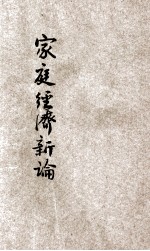 家庭經濟新論